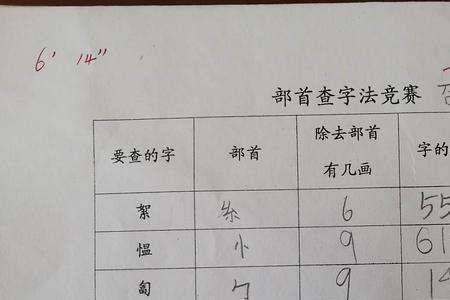 6' 14"
部首查字法竞赛
要查的字 部首 除去部首 字的
有几画
絮 糸 6 55
愠 忄 9 61
匐 勹 9 14